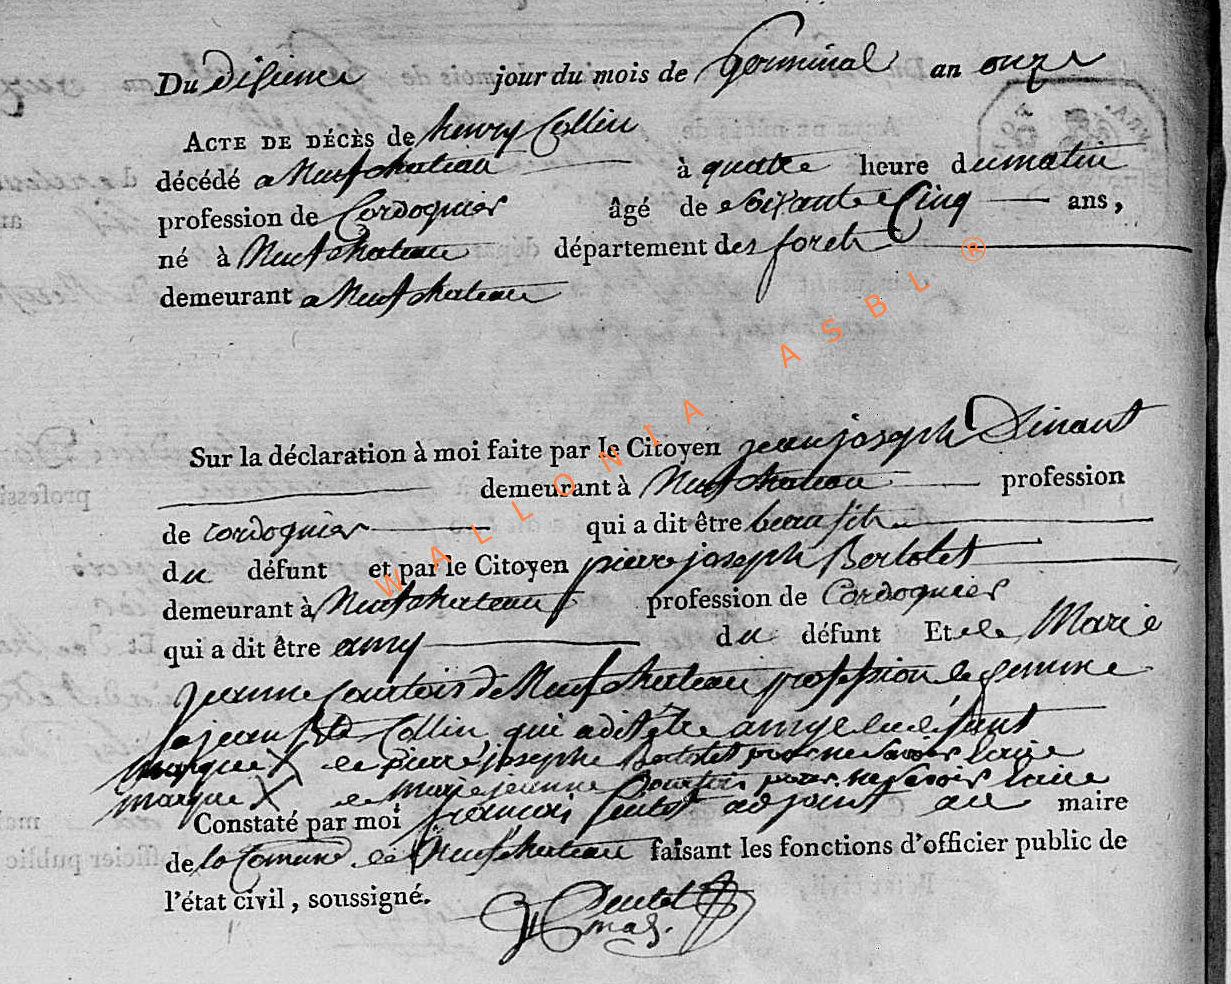 Du disieme jour du mois de Germinal an onze
ACTE DE DÉCÈS de henry Collin
décédé a Neufchateau à quattre heure du matin
profession de Cordoguier âgé de soixante Cinq ans,
né à Neufchateau département des forets
demeurant a Neufchateau
Sur la déclaration à moi faite par le Citoyen jean joseph Dinant
demeurant à Neufchateau profession
de cordoguier qui a dit être beau fils
du défunt et par le Citoyen pierre joseph Bertolet
demeurant à Neufchateau profession de Cordoguier
qui a dit être amy du défunt Et de Marie
jeanne Courtois de Neufchateau profession de femme
a jean Bte Collin qui a dit être amye du défunt
marque X de pierre joseph Bertolet pour ne savoir écrire
marque X de marie jeanne Courtois pour ne savoir écrire
Constaté par moi francois adjoint au maire
de la Comune de Neufchateau faisant les fonctions d'officier public de
l'état civil, soussigné.
WALLONIA ASBL ®